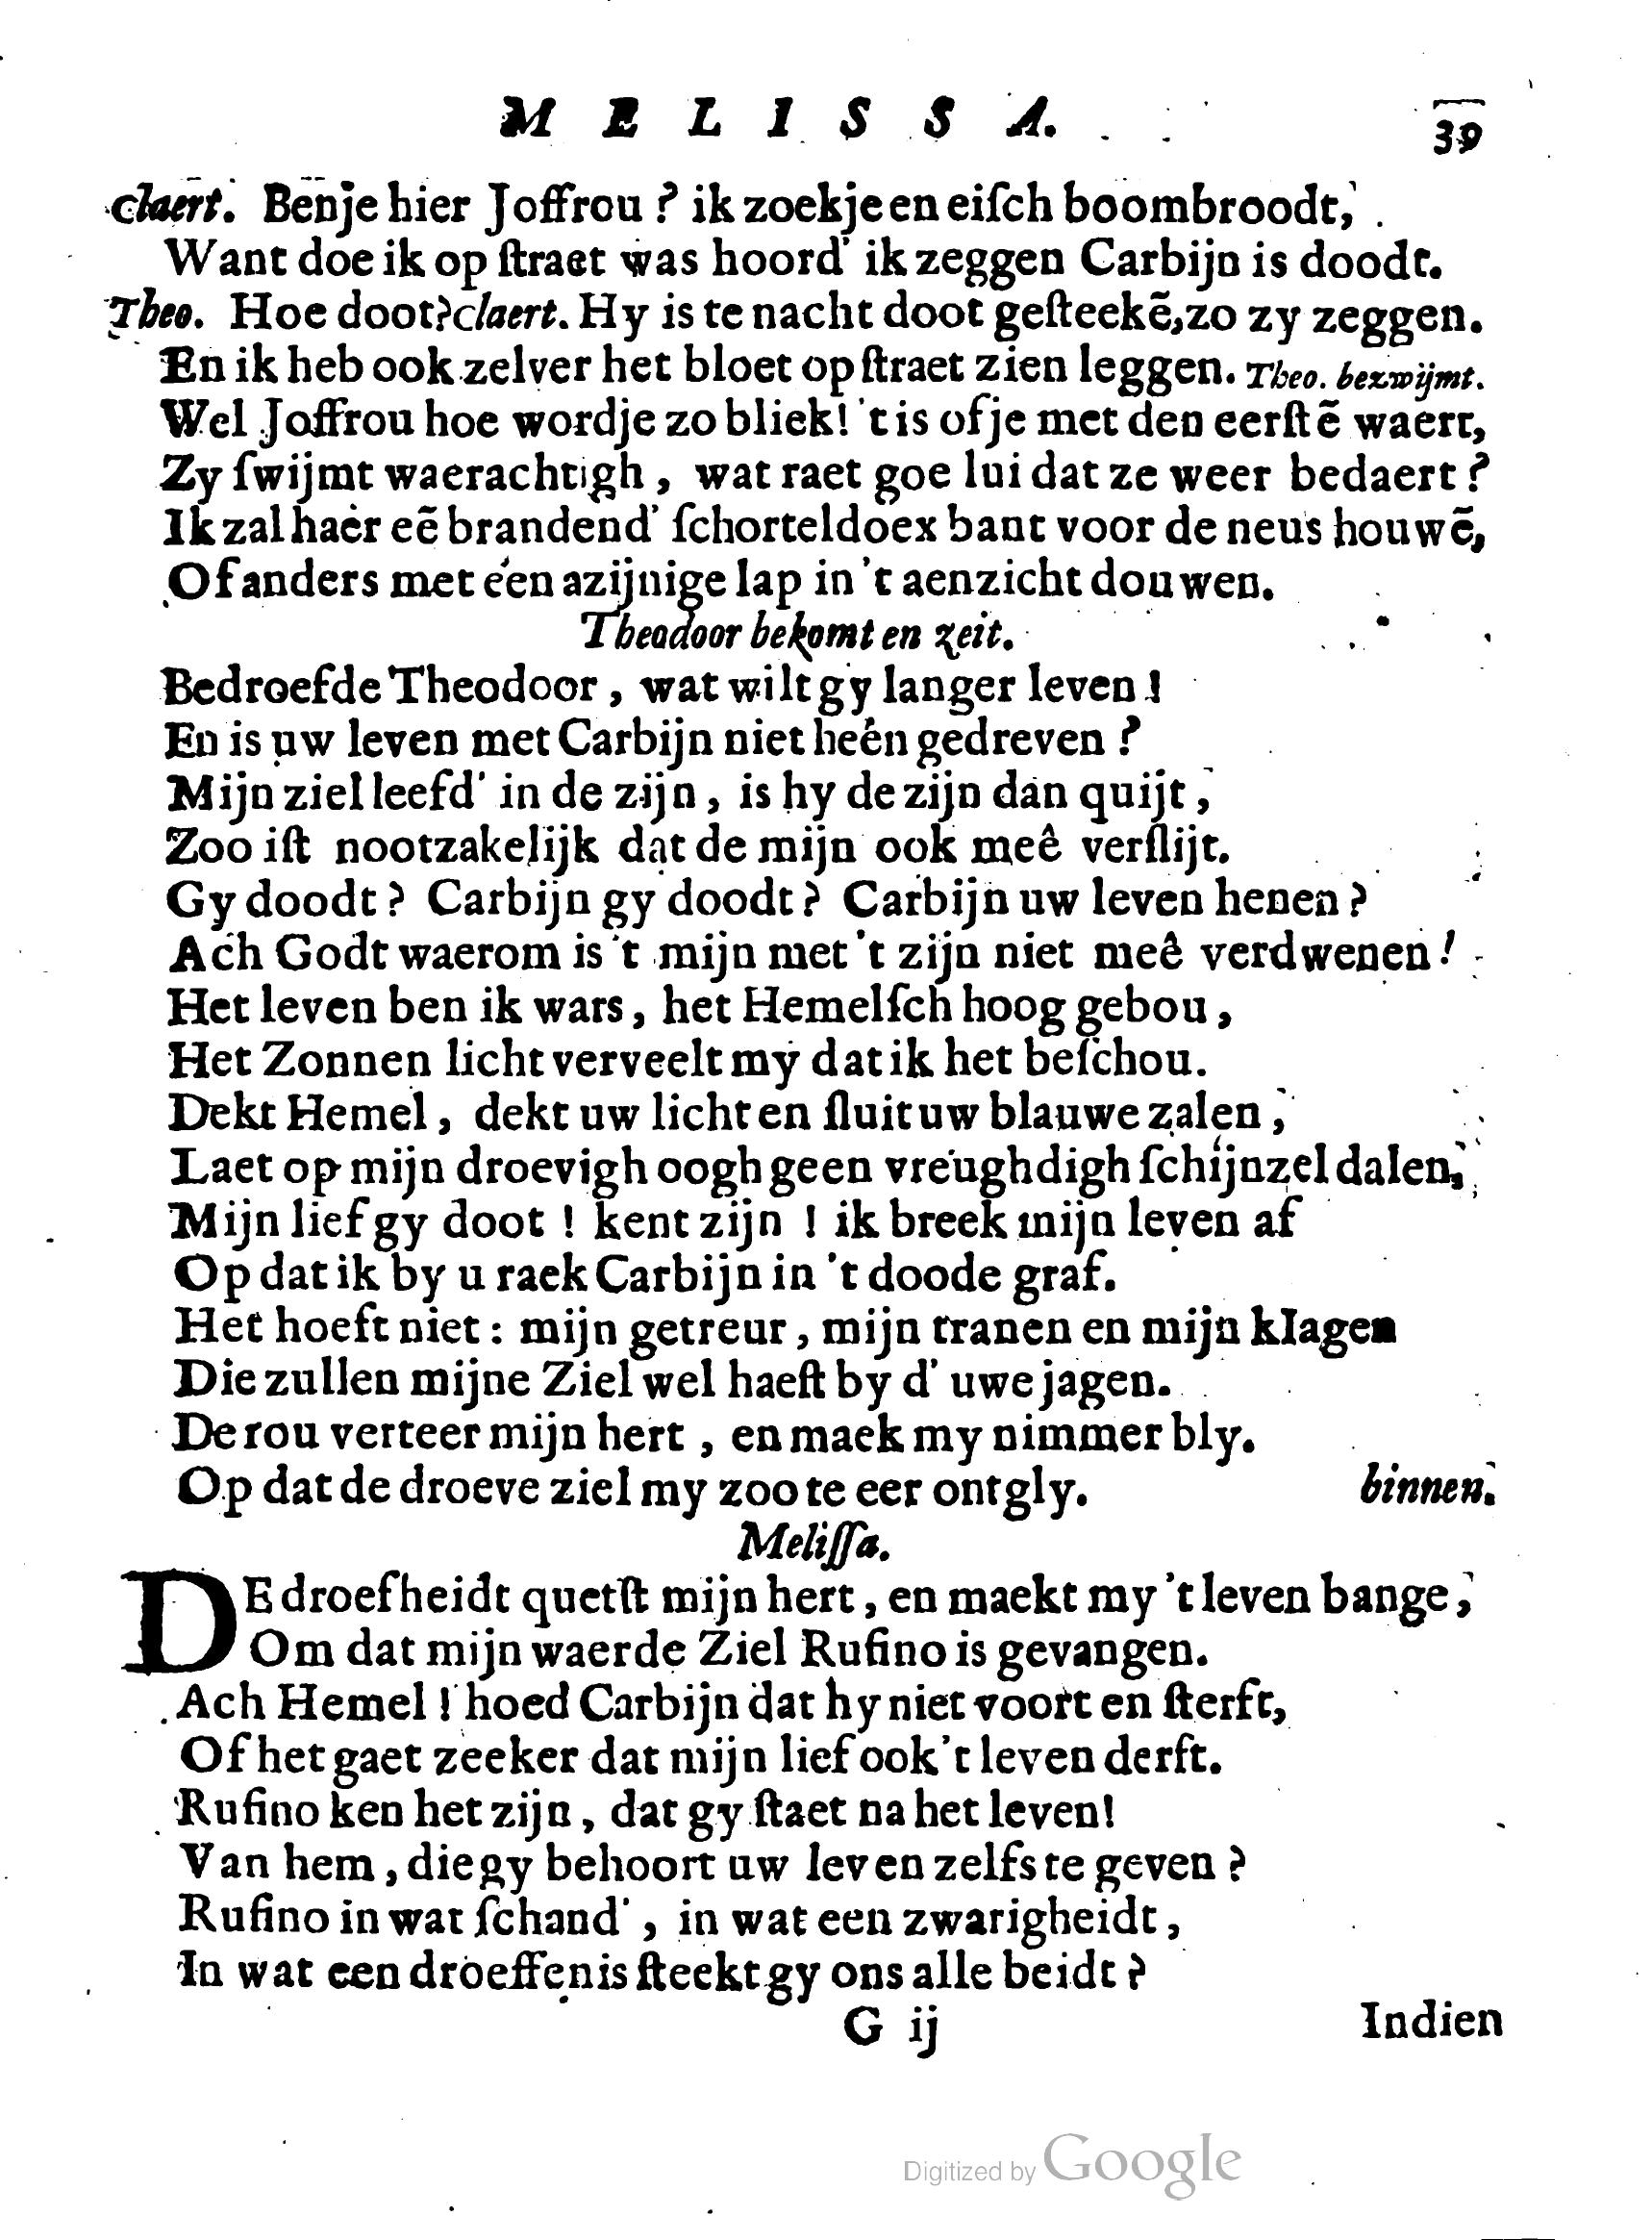 MELISSA. 39
claert. Benje hier Joffrou? ik zoekje en eiſch boombroodt,
Want doe ik op ſtraet was hoord' ik zeggen Carbijn is doodt.
Theo. Hoe doot? claert. Hy is te nacht doot geſteekẽ, zo zy zeggen.
En ik heb ook zelver het bloet op ſtraet zien leggen. Theo. bezwijmt.
Wel Joffrou hoe wordje zo bliek! 't is of je met den eerſtẽ waert,
Zy ſwijmt waerachtigh, wat raet goe lui dat ze weer bedaert?
Ik zal haer eẽ brandend' ſchorteldoex bant voor de neus houwẽ,
Of anders met één azijnige lap in 't aenzicht douwen.
Theodoor bekomt en zeit.
Bedroefde Theodoor, wat wilt gy langer leven!
En is uw leven met Carbijn niet heén gedreven?
Mijn ziel leefd' in de zijn, is hy de zijn dan quijt,
Zoo iſt nootzakelijk dat de mijn ook meê verſlijt.
Gy doodt? Carbijn gy doodt? Carbijn uw leven henen?
Ach Godt waerom is 't mijn met 't zijn niet meê verdwenen!
Het leven ben ik wars, het Hemelſch hoog gebou,
Het Zonnen licht verveelt my dat ik het beſchou.
Dekt Hemel, dekt uw licht en ſluit uw blauwe zalen,
Laet op mijn droevigh oogh geen vreughdigh ſchijnzel dalen,
Mijn lief gy doot! kent zijn! ik breek mijn leven af
Op dat ik by u raek Carbijn in 't doode graf.
Het hoeft niet: mijn getreur, mijn tranen en mijn klagen
Die zullen mijne Ziel wel haeſt by d' uwe jagen.
De rou verteer mijn hert, en maek my nimmer bly.
Op dat de droeve ziel my zoo te eer ontgly. binnen.
Meliſſa.
DE droefheidt quetſt mijn hert, en maekt my 't leven bange,
Om dat mijn waerde Ziel Rufino is gevangen.
Ach Hemel! hoed Carbijn dat hy niet voort en ſterft,
Of het gaet zeeker dat mijn lief ook 't leven derft.
Rufino ken het zijn, dat gy ſtaet na het leven!
Van hem, die gy behoort uw leven zelfs te geven?
Rufino in wat ſchand', in wat een zwarigheidt,
In wat een droeffenis ſteekt gy ons alle beidt?
G ij Indien
Digitized by Google